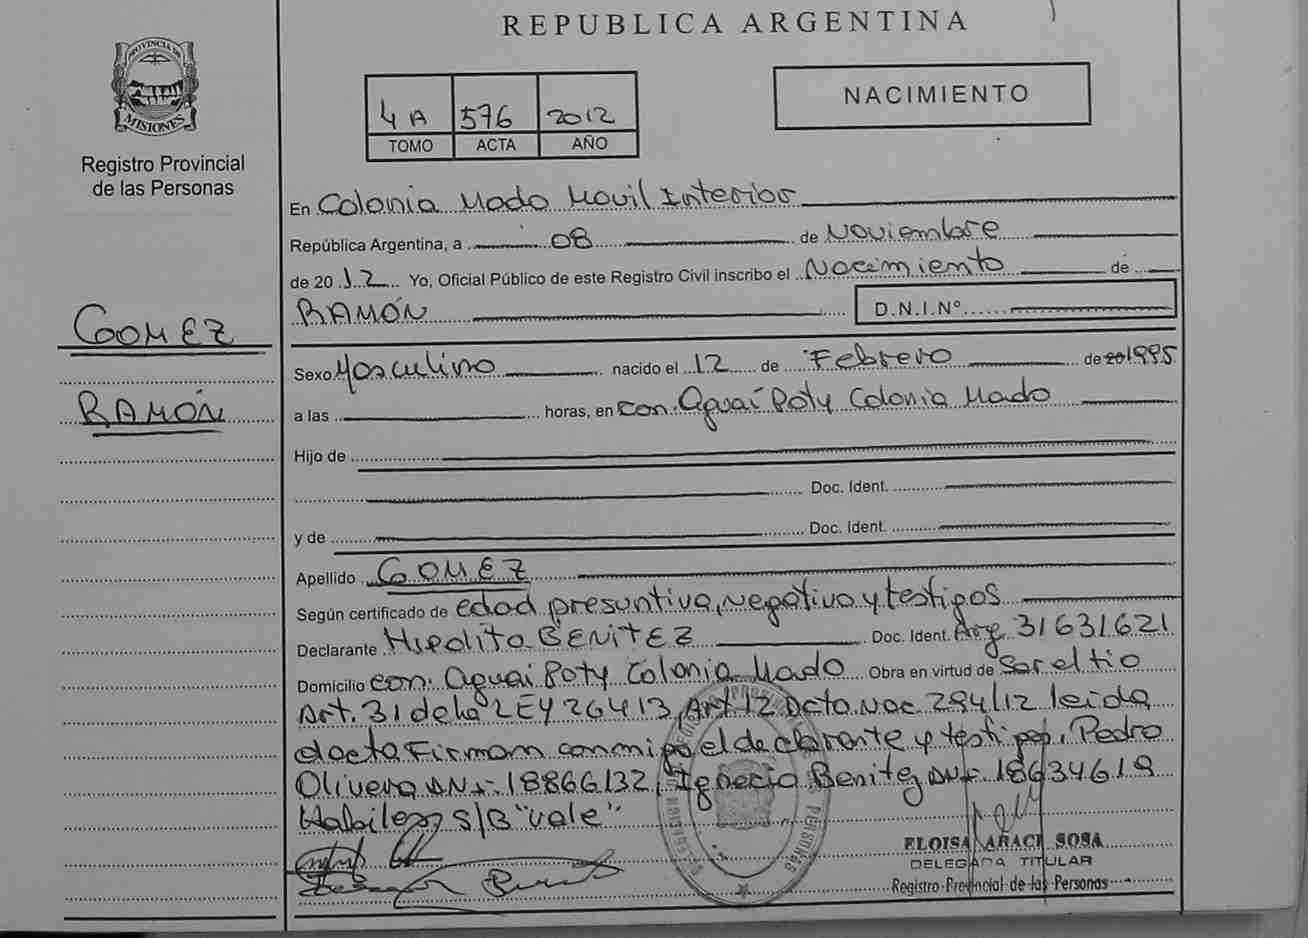 REPUBLICA ARGENTINA
PROVINCIA DE
MISIONES
Registro Provincial
de las Personas
4 A 576 2012
TOMO ACTA AÑO
NACIMIENTO
En Colonia Mado Movil Interior
República Argentina, a 08 de Noviembre
de 20 12 Yo, Oficial Público de este Registro Civil inscribo el Nacimiento de
RAMÓN D.N.I.Nº
GOMEZ
RAMÓN
Sexo Masculino nacido el 12 de Febrero de 20 1995
a las horas, en Con. Aguaí Poty Colonia Mado
Hijo de
Doc. Ident.
y de Doc. Ident.
Apellido GOMEZ
Según certificado de edad presuntiva, negativo y testigos
Declarante Hipolito BENITEZ Doc. Ident. Arg 31631621
Domicilio con. Aguai Poty Colonia Mado Obra en virtud de Ser el tio
Art. 31 de la LEY 26413, Art 12 Dcto. Nac. 294/12 leida
el acta Firman conmigo el declarante y testigos. Pedro
Olivera DNI: 18866132, Ignacio Benitez DNI: 18634619
S/B "vale"
ELOISA ARACI SOSA
DELEGADA TITULAR
Registro Provincial de las Personas